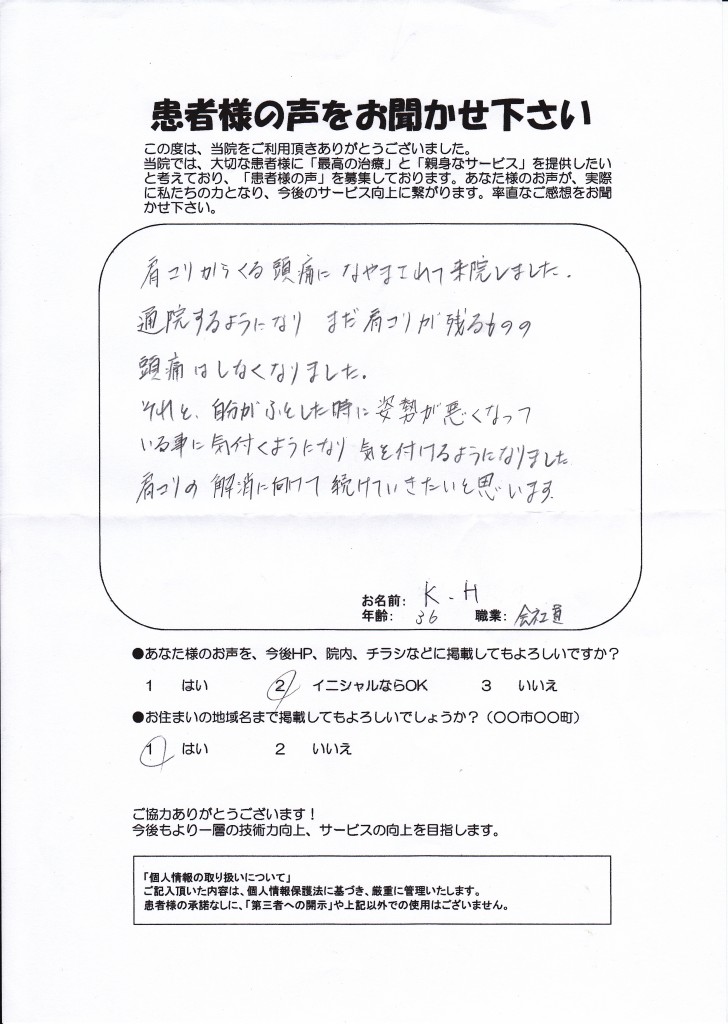 患者様の声をお聞かせ下さい
この度は、当院をご利用頂きありがとうございました。
当院では、大切な患者様に「最高の治療」と「親身なサービス」を提供したい
と考えており、「患者様の声」を募集しております。あなた様のお声が、実際
に私たちの力となり、今後のサービス向上に繋がります。率直なご感想をお聞
かせ下さい。
肩コリからくる頭痛になやまされて来院しました。
通院するようになり まだ肩コリが残るものの
頭痛はしなくなりました。
それと、自分がふとした時に姿勢が悪くなって
いる事に気付くようになり 気を付けるようになりました
肩コリの解消に向けて続けていきたいと思います。
お名前: K-H
年齢: 36 職業: 会社員
●あなた様のお声を、今後HP、院内、チラシなどに掲載してもよろしいですか?
1 はい 2 イニシャルならOK 3 いいえ
●お住まいの地域名まで掲載してもよろしいでしょうか?(〇〇市〇〇町)
1 はい 2 いいえ
ご協力ありがとうございます!
今後もより一層の技術力向上、サービスの向上を目指します。
「個人情報の取り扱いについて」
ご記入頂いた内容は、個人情報保護法に基づき、厳重に管理いたします。
患者様の承諾なしに、「第三者への開示」や上記以外での使用はございません。